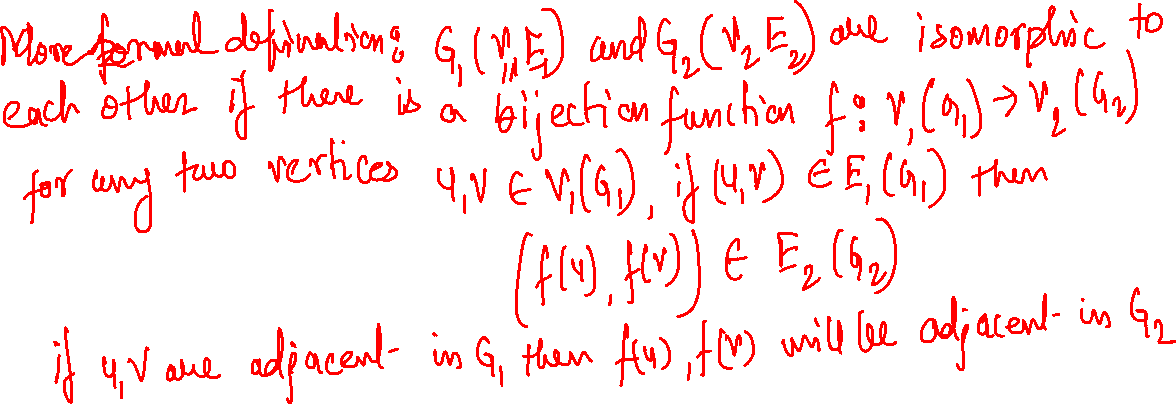 More formal defination: G₁(V₁,E₁) and G₂(V₂ E₂) are isomorphic to
each other if there is a bijection function f: V₁(G₁) → V₂(G₂)
for any two vertices u,v ∈ V₁(G₁), if (u,v) ∈ E₁(G₁) then
(f(u), f(v)) ∈ E₂(G₂)
if u,v are adjacent in G₁ then f(u), f(v) will be adjacent in G₂